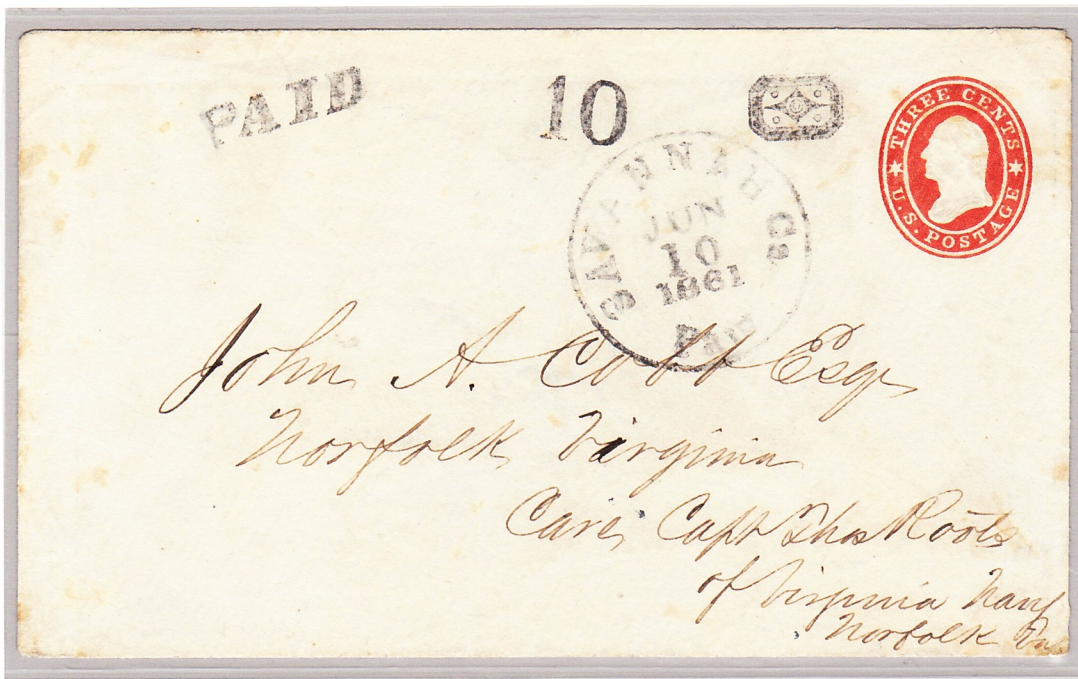 PAID
10
THREE CENTS
U.S. POSTAGE
SAVANNAH Ga
JUN
10
1861
Paid
John A. Cobb Esqr
Norfolk Virginia
Care Capt Thos Roots
of Virginia Navy
Norfolk Va